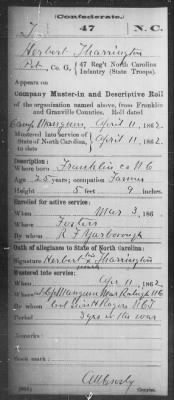 (Confederate.)
T 47 N.C.
Herbert Tharrington
Pvt, Co. G, 47 Reg't North Carolina
Infantry (State Troops)
Appears on
Company Muster-in and Descriptive Roll
of the organization named above, from Franklin
and Granville Counties. Roll dated
Camp Mangum, April 11, 1862
Mustered into service of
State of North Carolina, April 11, 1862
to date
Description:
Where born Franklin co NC
Age 25 years; occupation Farmer
Height 5 feet 9 inches.
Enrolled for active service:
When Mar 3, 186
Where Fosters
By whom R F Yarborough
Oath of allegiance to State of North Carolina:
Signature Herbert his x mark Tharrington
Mustered into service:
When Apr 11, 1862
Where at Camp Mangum Near Raleigh NC
By whom Rogers
Period 3 yrs or the war
Remarks:
Book mark:
Copyist.